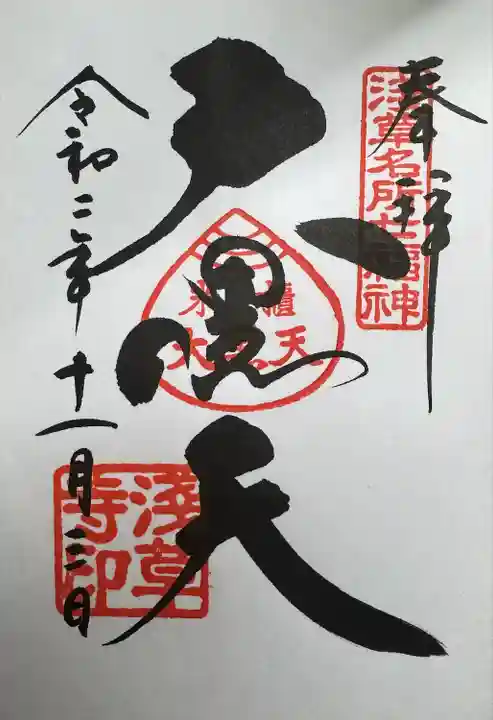 奉拝
浅草名所七福神
大黒天
米櫃大黒天
令和二年十一月三日
浅草寺印